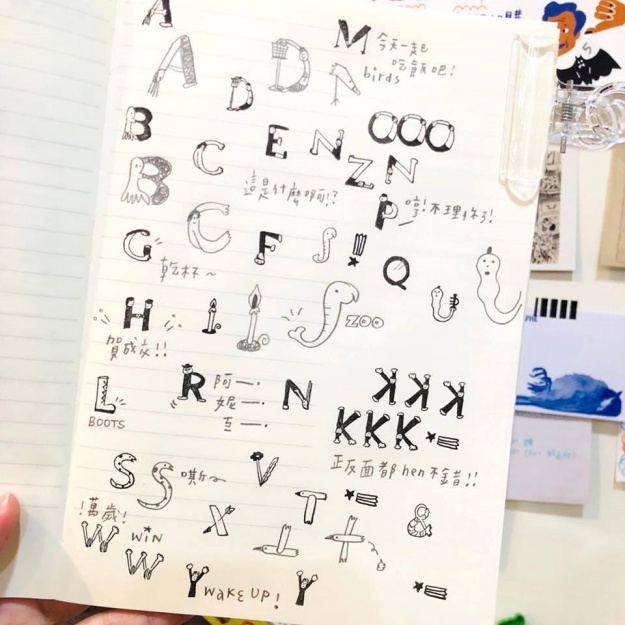 A
M 今天一起
吃飯吧!
A D N birds
D
B C E N OOO
Z N
B 這是什麼啊!?
P 哼!不理你了!
C
G F S !!
Q
乾杯~
H I I S ZOO
賀成交!!
L R 阿一.
妮一.
N
BOOTS
KKK
KKK
正反面都hen不錯!!
S S 嘶~ V
T
!萬歲!
X &
W WIN
W
Y WAKE UP! Y